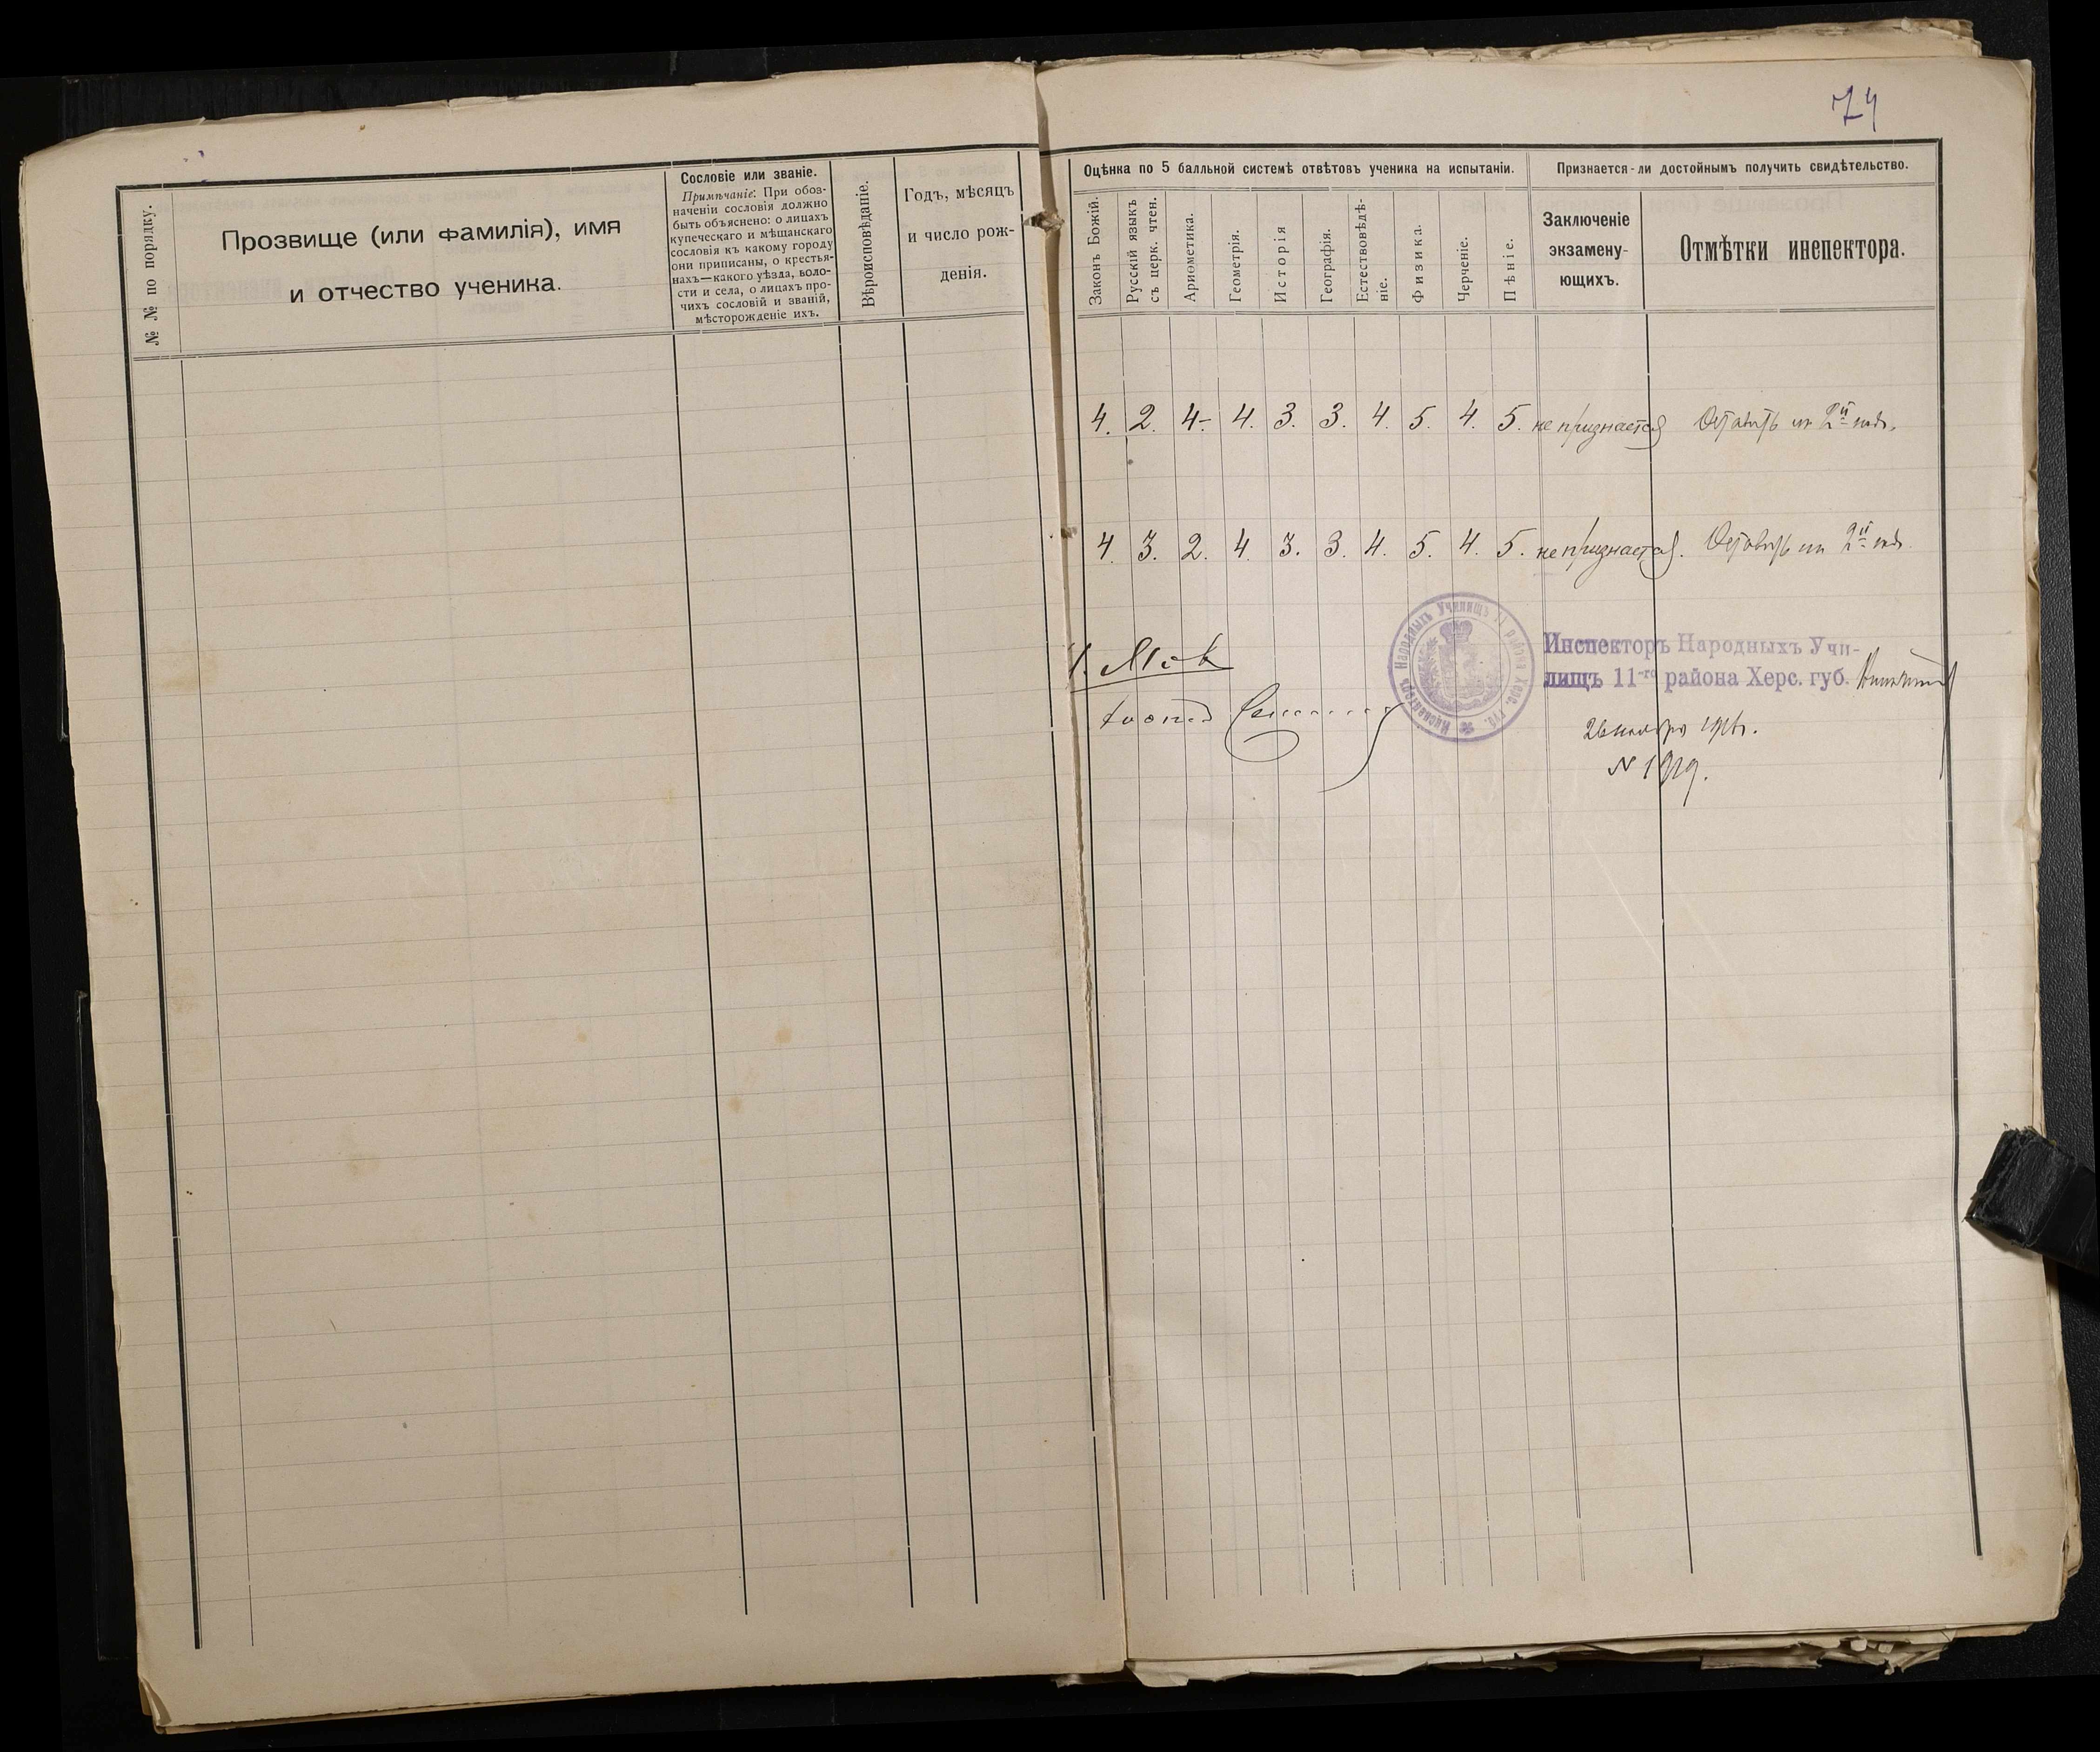 74
№ № по порядку.
Прозвище (или фамилія), имя
и отчество ученика.
Сословіе или званіе.
Примѣчаніе: При обоз-
наченіи сословія должно
быть объяснено: о лицахъ
купеческаго и мѣщанскаго
сословія къ какому городу
они приписаны, о крестья-
нахъ—какого уѣзда, воло-
сти и села, о лицахъ про-
чихъ сословій и званій,
мѣсторожденіе ихъ.
Вѣроисповѣданіе.
Годъ, мѣсяцъ
и число рож-
денія.
Оцѣнка по 5 балльной системѣ отвѣтовъ ученика на испытаніи.
Законъ Божій.
Русскій языкъ
съ церк. чтен.
Ариѳметика.
Геометрія.
Исторія
Географія.
Естествовѣдѣ-
ніе.
Физика.
Черченіе.
Пѣніе.
Признается-ли достойнымъ получить свидѣтельство.
Заключеніе
экзамену-
ющихъ.
Отмѣтки инспектора.
4. 2. 4- 4. 3. 3. 4. 5. 4. 5. не признается Оставить на 2й
4. 3. 2. 4. 3. 3. 4. 5. 4. 5. не признается. Оставить на 2й
Инспекторъ Народныхъ Училищъ 11 района Херс. губ.
Инспекторъ Народныхъ Учи-
лищъ 11-го района Херс. губ.
ноября 1916 г.
N 1919.